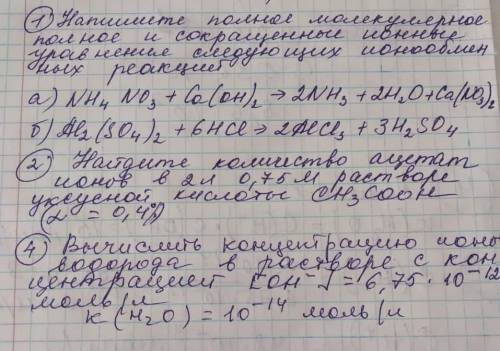 1) Напишите полное молекулярное
полное и сокращенные ионные
уравнение следующих ионообмен
ных реакций
а) NH4 NO3 + Ca(OH)2 → 2NH3 + 2H2O + Ca(NO3)2
б) Al2(SO4)2 + 6HCl → 2AlCl3 + 3H2SO4
2) Найдите количество ацетат
ионов в 2л 0,75М растворе
уксусной кислоты CH3COOH
(α = 0,4%)
4) Вычислить концентрацию ионы
водорода в растворе с кон
центрацией [OH-] = 6,75 · 10-12
моль/л
K(H2O) = 10-14 моль/л